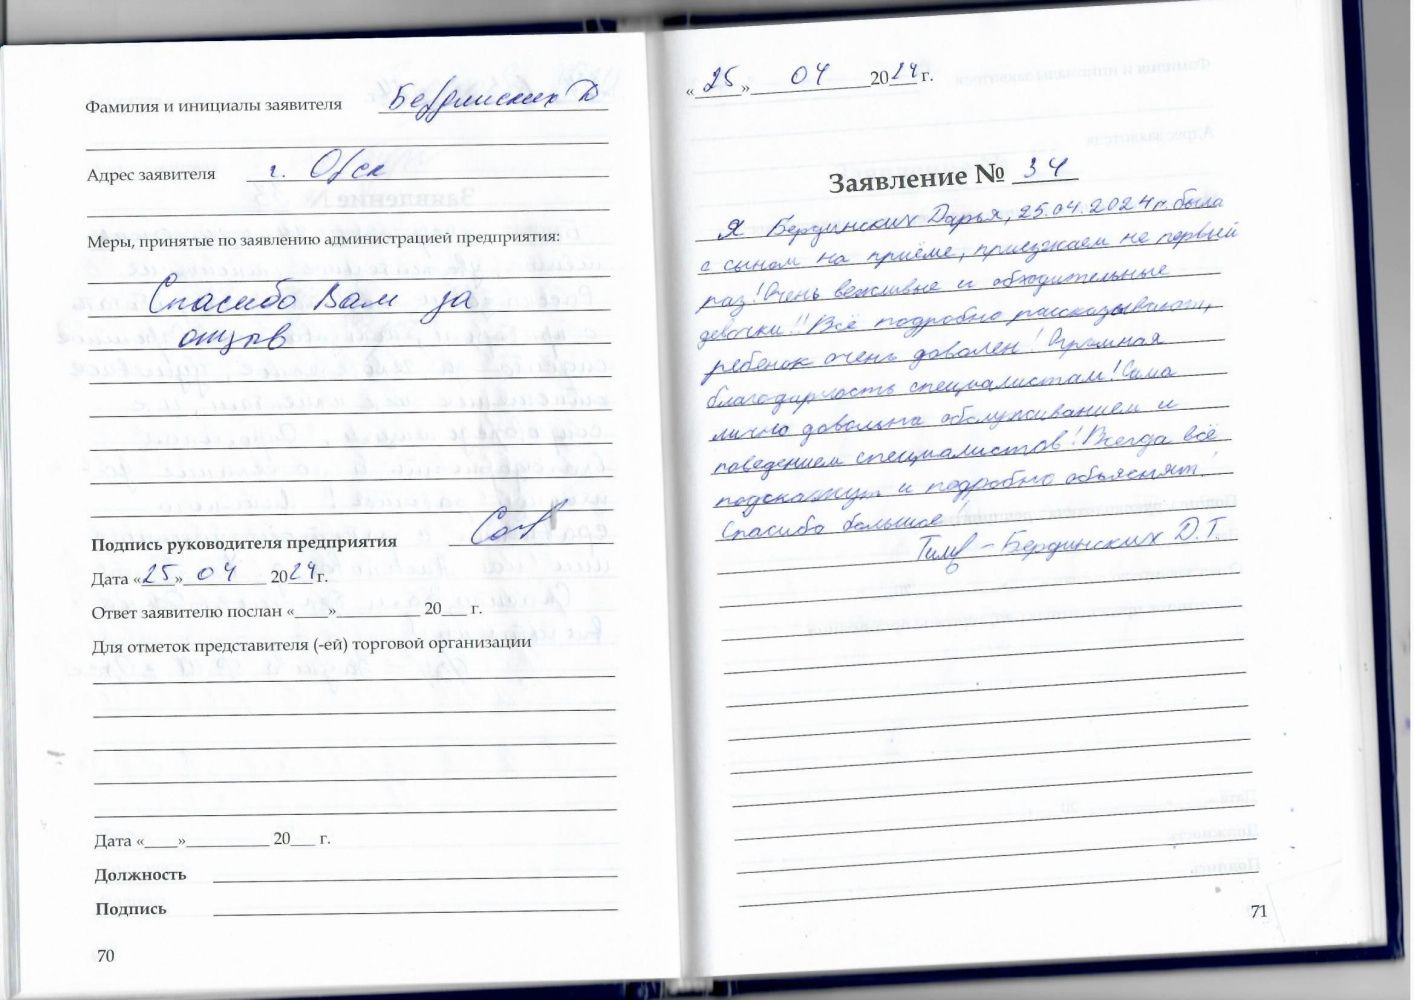 Фамилия и инициалы заявителя Бердинских Д
Адрес заявителя г. Орск
Меры, принятые по заявлению администрацией предприятия:
Спасибо Вам за
отзыв
Подпись руководителя предприятия
Дата «25» 04 2024г.
Ответ заявителю послан «____»__________ 20___ г.
Для отметок представителя (-ей) торговой организации
Дата «____»__________ 20___ г.
Должность
Подпись
70
«25» 04 2024 г.
Заявление № 34
Я Бердинских Дарья, 25.04.2024г. была
с сыном на приёме, приезжаем не первый
раз! Очень вежливые и обходительные
девочки!! Всё подробно рассказывают,
ребенок очень доволен! Огромная
благодарность специалистам! Сама
лично довольна обслуживанием и
поведением специалистов! Всегда всё
подскажут и подробно объяснят!
Спасибо большое!
– Бердинских Д.Т.
71